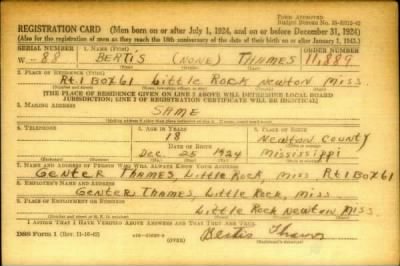 FORM APPROVED
REGISTRATION CARD—(Men born on or after July 1, 1924, and on or before December 31, 1924)
(Also for the registration of men as they reach the 18th anniversary of the date of their birth on or after January 1, 1943.)
SERIAL NUMBER
1. NAME (Print)
ORDER NUMBER
W-88
BERTIS (NONE) THAMES
11,889
2. PLACE OF RESIDENCE (Print)
Rt. 1 BOX 61 LITTLE ROCK NEWTON MISS
[THE PLACE OF RESIDENCE GIVEN ON LINE 2 ABOVE WILL DETERMINE LOCAL BOARD
JURISDICTION; LINE 2 OF REGISTRATION CERTIFICATE WILL BE IDENTICAL]
3. MAILING ADDRESS
SAME
4. TELEPHONE
5. AGE IN YEARS
6. PLACE OF BIRTH
18
NEWTON COUNTY
DATE OF BIRTH
DEC 25 1924
MISSISSIPPI
7. NAME AND ADDRESS OF PERSON WHO WILL ALWAYS KNOW YOUR ADDRESS
GENTER THAMES, LITTLE ROCK, MISS Rt. 1 BOX 61
8. EMPLOYER'S NAME AND ADDRESS
GENTER THAMES, LITTLE ROCK, MISS
9. PLACE OF EMPLOYMENT OR BUSINESS
LITTLE ROCK NEWTON MISS.
I AFFIRM THAT I HAVE VERIFIED ABOVE ANSWERS AND THAT THEY ARE TRUE.
DSS Form 1
(OVER)
Bertis Thames